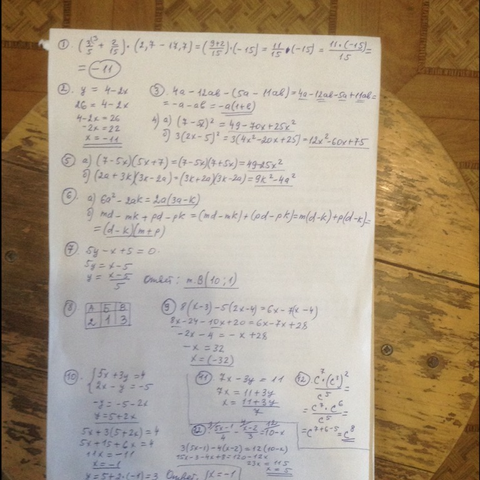 ① (3/5 + 2/15) · (2,7 - 17,7) = (9+2/15) · (-15) = 11/15 · (-15) = 11·(-15)/15 =
= -11
② y = 4-2x
26 = 4-2x
4-2x = 26
-2x = 22
x = -11
③ 4a-12ab-(5a-11ab) = 4a-12ab-5a+11ab =
= -a-ab = -a(1+b)
4) а) (7-5x)² = 49-70x+25x²
б) 3(2x-5)² = 3(4x²-20x+25) = 12x²-60x+75
⑤ а) (7-5x)(5x+7) = (7-5x)(7+5x) = 49-25x²
б) (2a+3k)(3k-2a) = (3k+2a)(3k-2a) = 9k²-4a²
⑥ а) 6a²-2ak = 2a(3a-k)
б) md-mk+pd-pk = (md-mk)+(pd-pk) = m(d-k)+p(d-k) =
= (d-k)(m+p)
⑦ 5y-x+5 = 0
5y = x-5
y = x-5/5 Ответ: т.В(10;1)
⑧ А Б В
2 1 3
⑨ 8(x-3)-5(2x-4) = 6x-7(x-4)
8x-24-10x+20 = 6x-7x+28
-2x-4 = -x+28
-x = 32
x = (-32)
⑩ 5x+3y = 4
2x-y = -5
-y = -5-2x
y = 5+2x
5x+3(5+2x) = 4
5x+15+6x = 4
11x = -11
x = -1
y = 5+2·(-1) = 3 Ответ: x = -1
⑪ 7x-3y = 11
7x = 11+3y
x = 11+3y/7
3(5x-1)-4(x-2) = 12(10-x)
15x-3-4x+8 = 120-12x
23x = 115
x = 5
⑫ c⁷·(c³)²/c⁵ =
= c⁷·c⁶/c⁵ =
= c⁷⁺⁶⁻⁵ = c⁸